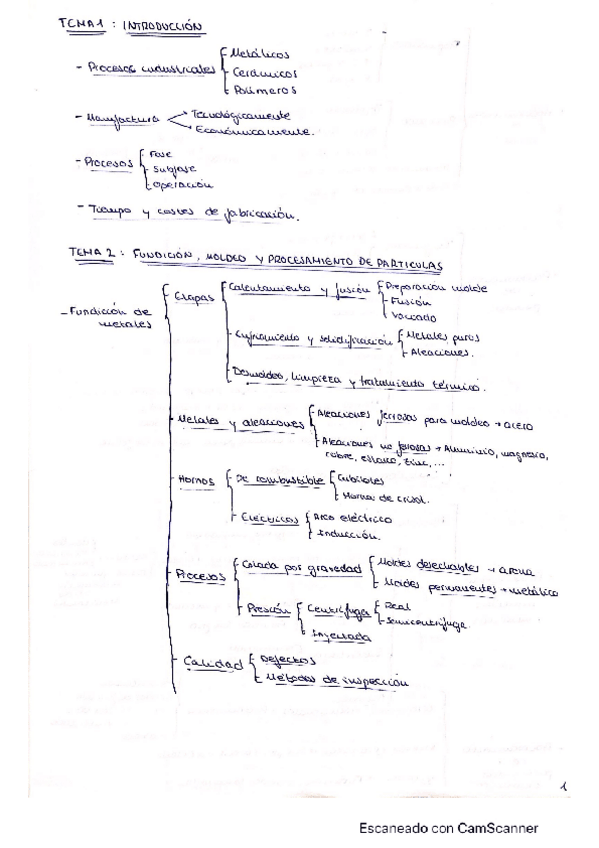 TEMA 1 : INTRODUCCIÓN
- Procesos industriales
Metálicos
Cerámicos
Polímeros
- Manufactura
Tecnológicamente
Económicamente.
- Procesos
Fase
Subfase
Operación
- Tiempo y costes de fabricación.
TEMA 2 : FUNDICIÓN, MOLDEO Y PROCESAMIENTO DE PARTICULAS
- Fundición de metales
Etapas
Calentamiento y fusión
Preparación molde
Fusión
Vaciado
Enfriamiento y solidificación
Metales puros
Aleaciones.
Desmoldeo, limpieza y tratamiento térmico.
Metales y aleaciones
Aleaciones ferrosas para moldeo → acero
Aleaciones no ferrosas → Aluminio, magnesio,
cobre, estaño, zinc, ...
Hornos
De combustible
Cubilotes
Horno de crisol.
Eléctricos
Arco eléctrico
Inducción.
Procesos
Colada por gravedad
Moldes desechables → arena
Moldes permanentes → metálico
Presión
Centrífuga
Real
Semicentrífuga
Inyectada
Calidad
Defectos
Métodos de inspección
1
Escaneado con CamScanner